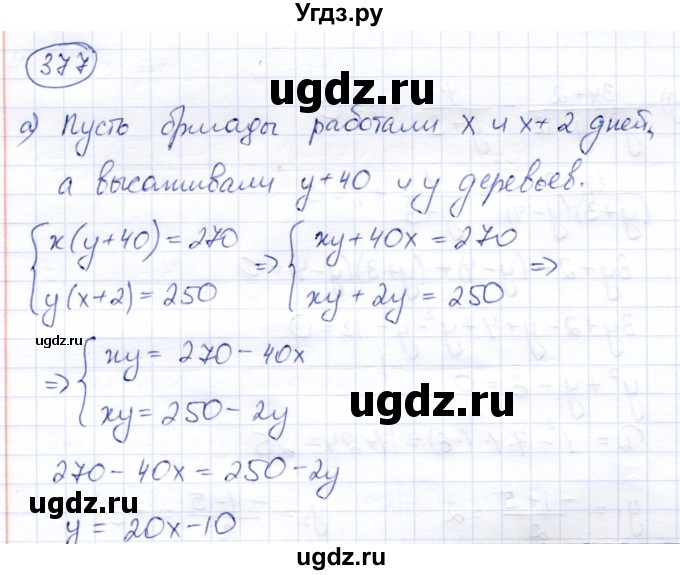 Угдз.ру
377
ugdz.ru
а) Пусть бригады работали x и x+2 дней,
а высаживали y+40 и y деревьев.
{ x(y+40) = 270 => { xy+40x = 270 =>
{ y(x+2) = 250 { xy+2y = 250
ugdz.ru
ugdz.ru
ugdz.ru
=> { xy = 270-40x
{ xy = 250-2y
ugdz.ru
270-40x = 250-2y
y = 20x-10
ugdz.ru
ugdz.ru
ugdz.ru